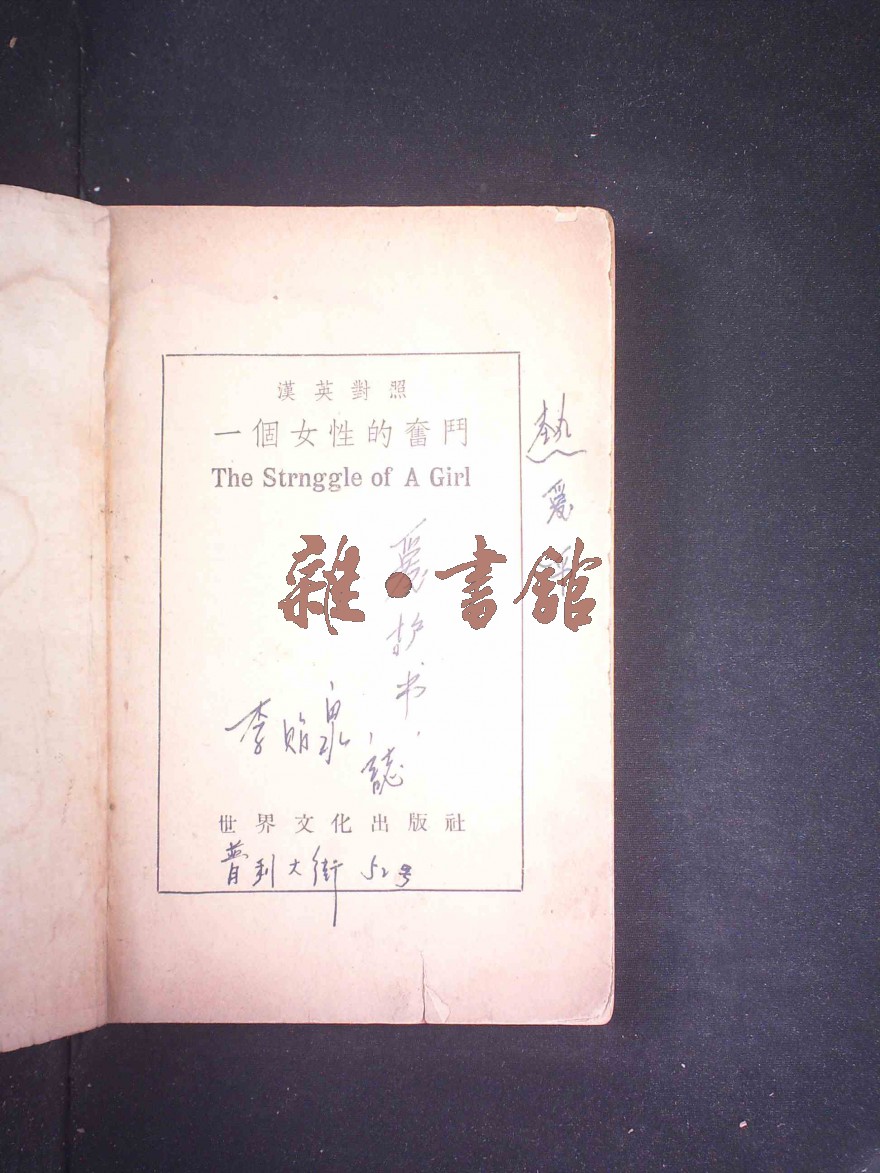 漢英對照
一個女性的奮鬥
The Strnggle of A Girl
熱愛
愛护书
雜·書館
李貽泉
誌
世界文化出版社
普利大街52号